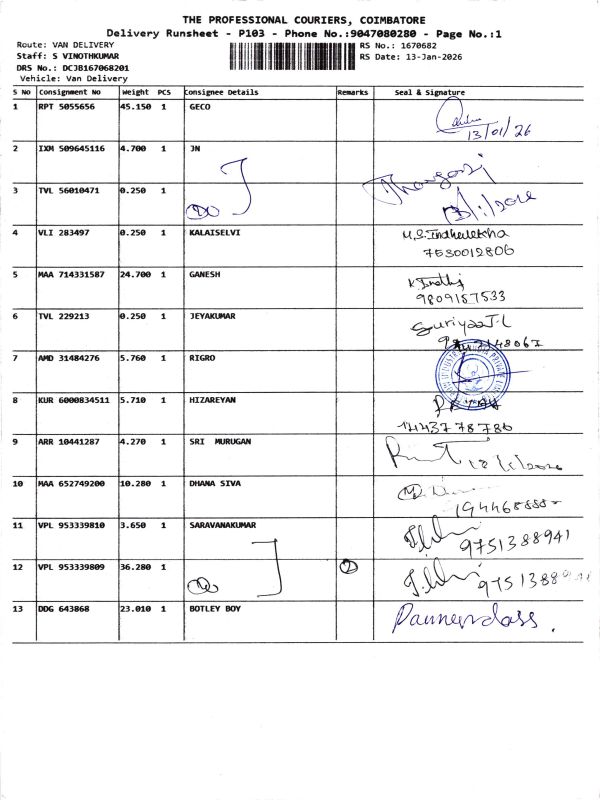 THE PROFESSIONAL COURIERS, COIMBATORE
Delivery Runsheet - P103 - Phone No.:9047080280 - Page No.:1
Route: VAN DELIVERY
RS No.: 1670682
Staff: S VINOTHKUMAR
RS Date: 13-Jan-2026
DRS No.: DCJB167068201
Vehicle: Van Delivery
S No Consignment No Weight PCS Consignee Details Remarks Seal & Signature
1 RPT 5055656 45.150 1 GECO
13/01/26
2 IXM 509645116 4.700 1 JN
3 TVL 56010471 0.250 1
4 VLI 283497 0.250 1 KALAISELVI M.S.Indhulekha
7530012806
5 MAA 714331587 24.700 1 GANESH
9809157533
6 TVL 229213 0.250 1 JEYAKUMAR
7 AMD 31484276 5.760 1 RIGRO
8 KUR 6000834511 5.710 1 HIZAREYAN
9 ARR 10441287 4.270 1 SRI MURUGAN
10 MAA 652749200 10.280 1 DHANA SIVA
11 VPL 953339810 3.650 1 SARAVANAKUMAR 9751388941
12 VPL 953339809 36.280 1 2
13 DDG 643868 23.010 1 BOTLEY BOY